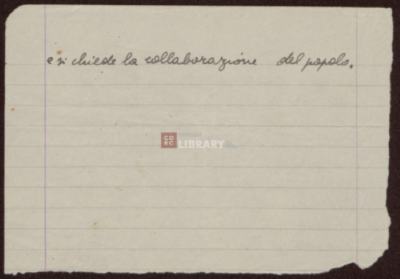 e si chiede la collaborazione del popolo.
CDEC
LIBRARY